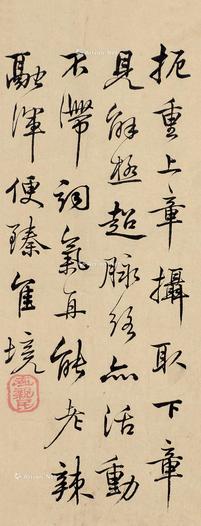 扼重上章攝取下章
見解極超脉絡亦活動
不滯詞氣再能老辣
融渾便臻佳境